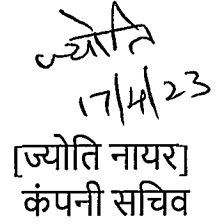 ज्योति
17/4/23
[ज्योति नायर]
कंपनी सचिव